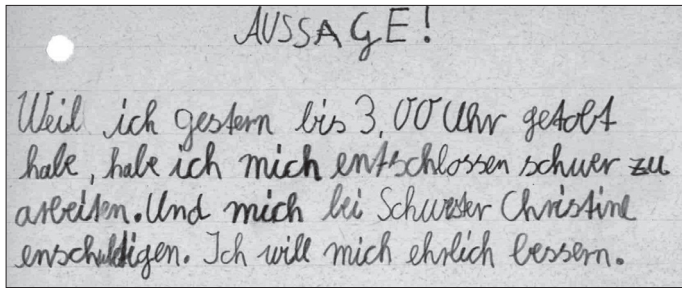 AUSSAGE!
Weil ich gestern bis 3,00 Uhr getobt
habe, habe ich mich entschlossen schwer zu
arbeiten. Und mich bei Schwester Christine
enschuldigen. Ich will mich ehrlich bessern.